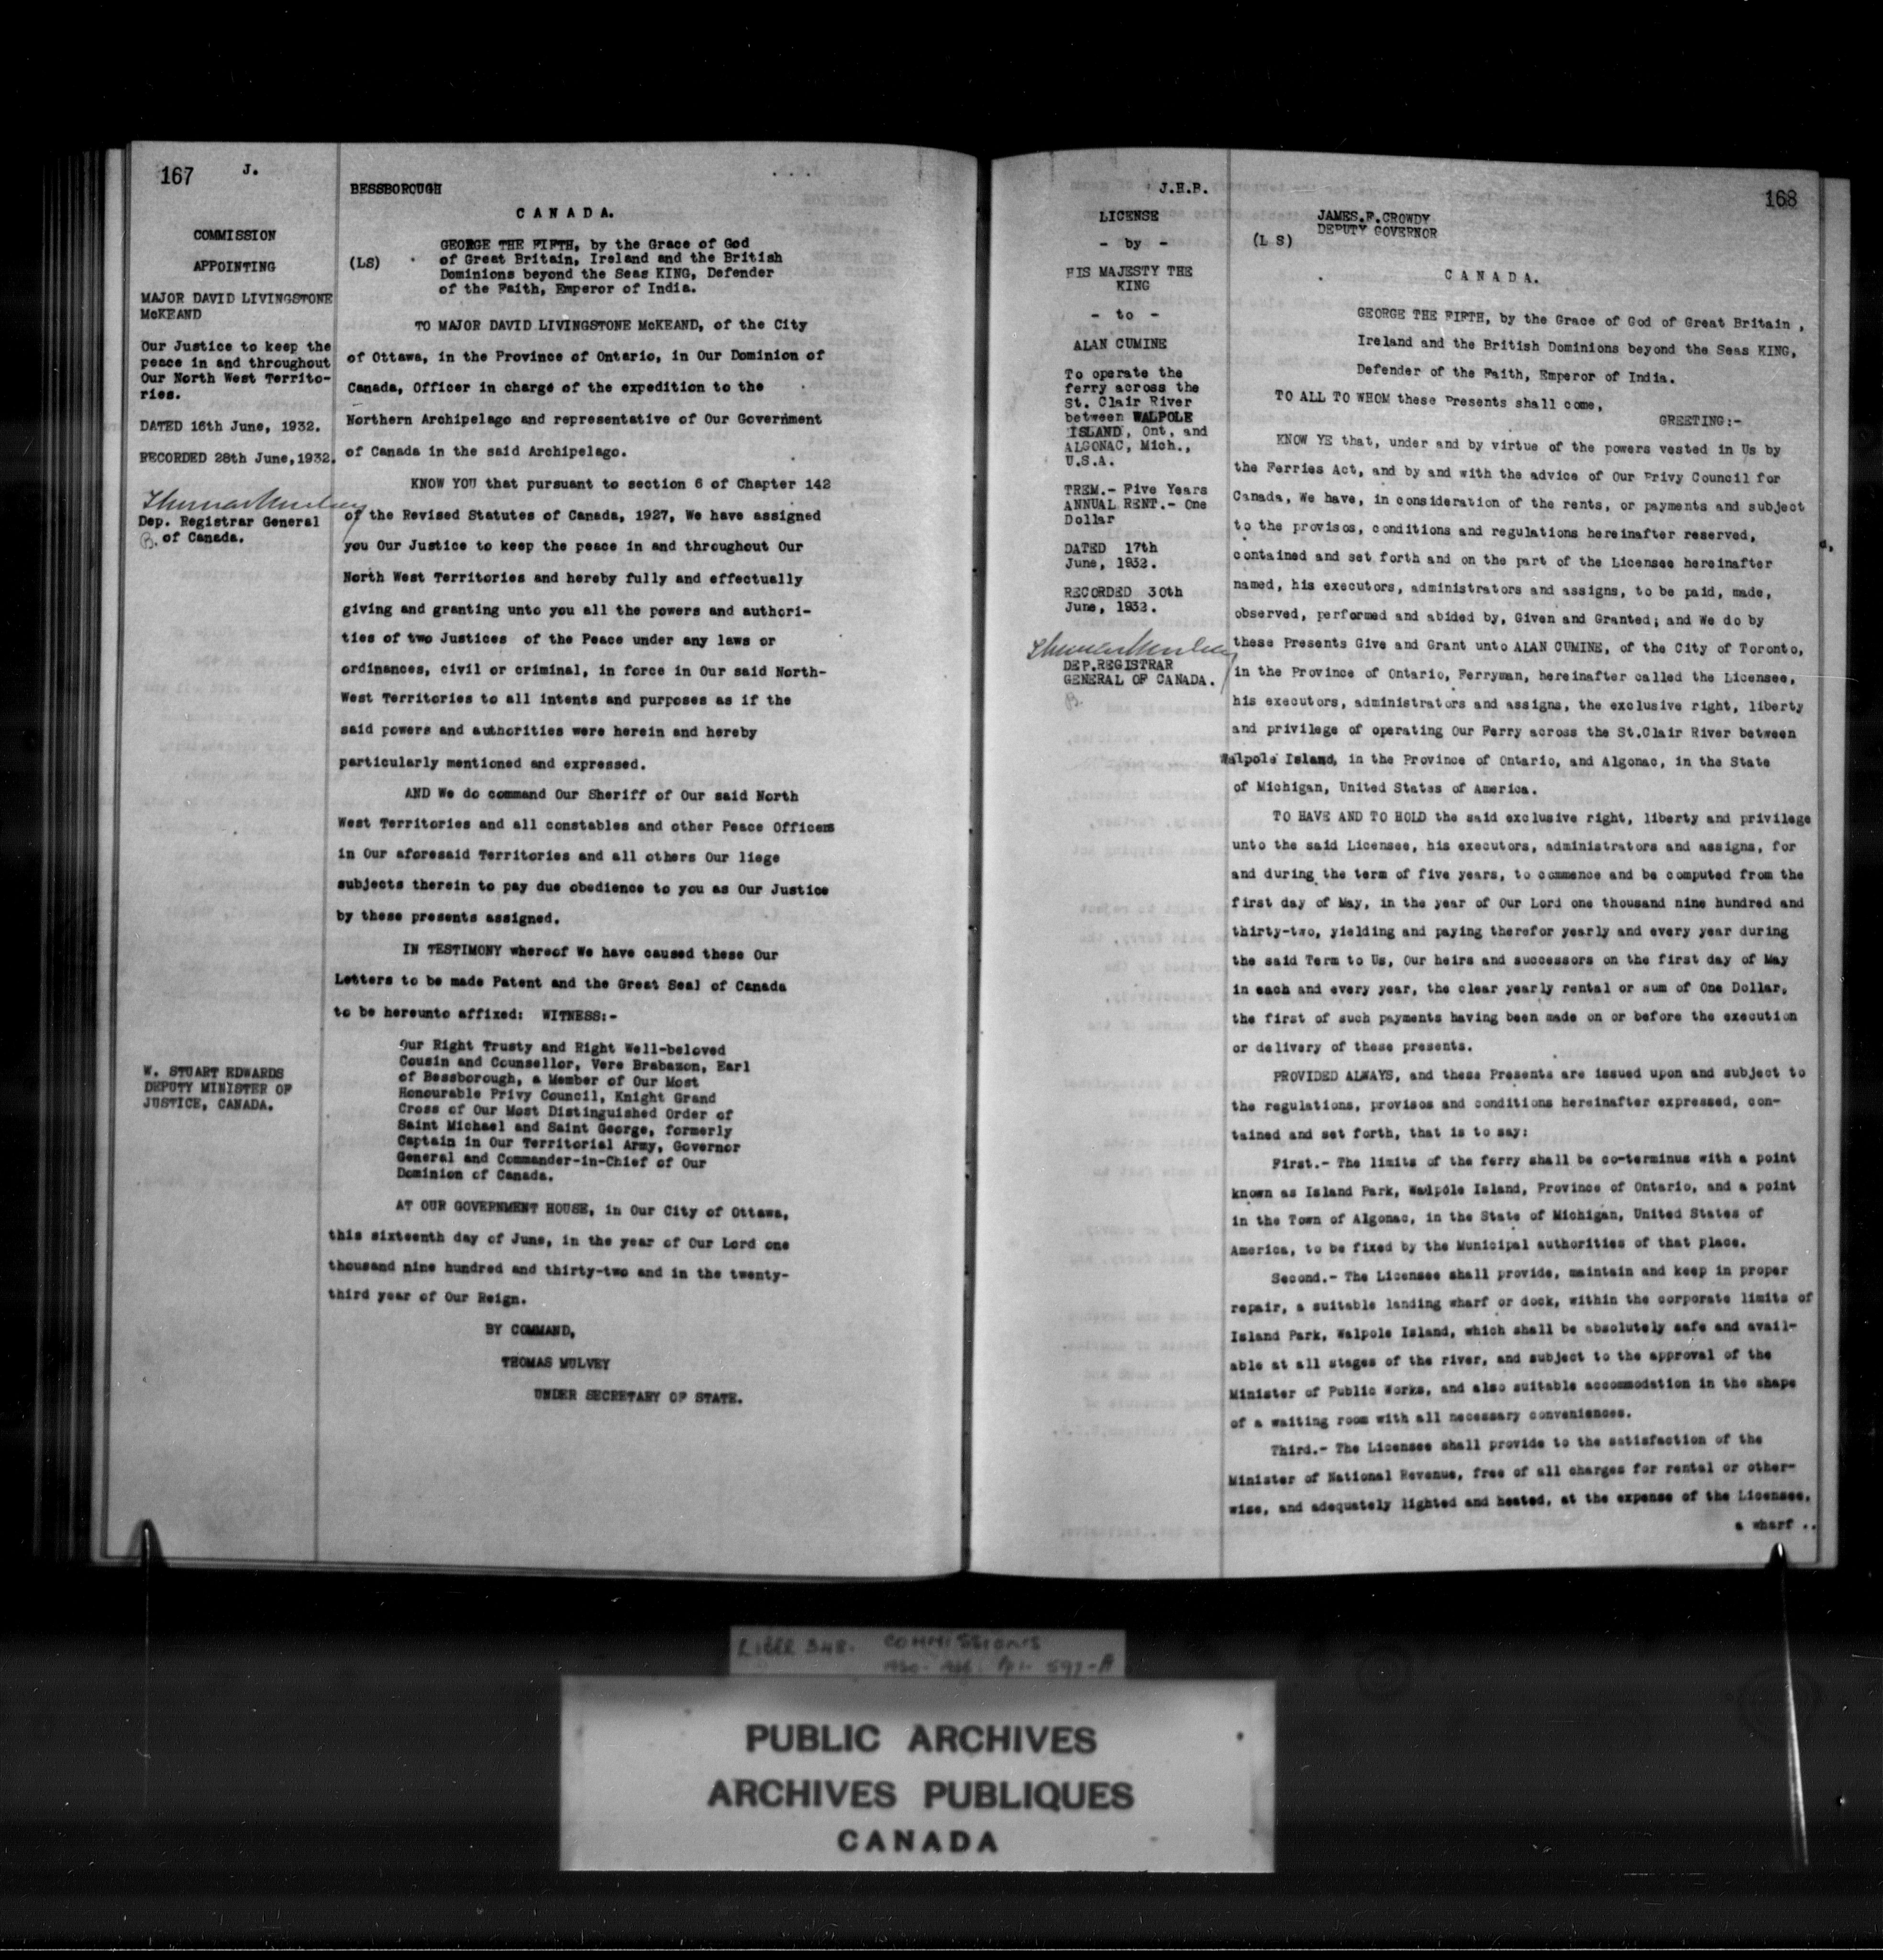 167
J.
COMMISSION
APPOINTING
MAJOR DAVID LIVINGSTONE
McKEAND
Our Justice to keep the
peace in and throughout
Our North West Territo-
ries.
DATED 16th June, 1932.
RECORDED 28th June, 1932.
Thomas Mulvey
Dep. Registrar General
of Canada.
B.
W. STUART EDWARDS
DEPUTY MINISTER OF
JUSTICE, CANADA.
BESSBOROUGH
CANADA.
(LS)
GEORGE THE FIFTH, by the Grace of God
of Great Britain, Ireland and the British
Dominions beyond the Seas KING, Defender
of the Faith, Emperor of India.
TO MAJOR DAVID LIVINGSTONE McKEAND, of the City
of Ottawa, in the Province of Ontario, in Our Dominion of
Canada, Officer in charge of the expedition to the
Northern Archipelago and representative of Our Government
of Canada in the said Archipelago.
KNOW YOU that pursuant to section 6 of Chapter 142
of the Revised Statutes of Canada, 1927, We have assigned
you Our Justice to keep the peace in and throughout Our
North West Territories and hereby fully and effectually
giving and granting unto you all the powers and authori-
ties of two Justices of the Peace under any laws or
ordinances, civil or criminal, in force in Our said North-
West Territories to all intents and purposes as if the
said powers and authorities were herein and hereby
particularly mentioned and expressed.
AND We do command Our Sheriff of Our said North
West Territories and all constables and other Peace Officers
in Our aforesaid Territories and all others Our liege
subjects therein to pay due obedience to you as Our Justice
by these presents assigned.
IN TESTIMONY whereof We have caused these Our
Letters to be made Patent and the Great Seal of Canada
to be hereunto affixed: WITNESS:-
Our Right Trusty and Right Well-beloved
Cousin and Counsellor, Vere Brabazon, Earl
of Bessborough, a Member of Our Most
Honourable Privy Council, Knight Grand
Cross of Our Most Distinguished Order of
Saint Michael and Saint George, formerly
Captain in Our Territorial Army, Governor
General and Commander-in-Chief of Our
Dominion of Canada.
AT OUR GOVERNMENT HOUSE, in Our City of Ottawa,
this sixteenth day of June, in the year of Our Lord one
thousand nine hundred and thirty-two and in the twenty-
third year of Our Reign.
BY COMMAND,
THOMAS MULVEY
UNDER SECRETARY OF STATE.
168
J.H.P.
LICENSE
- by -
HIS MAJESTY THE
KING
- to -
ALAN CUMINE
To operate the
ferry across the
St. Clair River
between WALPOLE
ISLAND, Ont, and
ALGONAC, Mich.,
U.S.A.
TREM.- Five Years
ANNUAL RENT.- One
Dollar
DATED 17th
June, 1932.
RECORDED 30th
June, 1932.
Thomas Mulvey
DEP.REGISTRAR
GENERAL OF CANADA.
B.
JAMES.F.CROWDY
DEPUTY GOVERNOR
(L S)
CANADA.
GEORGE THE FIFTH, by the Grace of God of Great Britain ,
Ireland and the British Dominions beyond the Seas KING,
Defender of the Faith, Emperor of India.
TO ALL TO WHOM these Presents shall come,
GREETING:-
KNOW YE that, under and by virtue of the powers vested in Us by
the Ferries Act, and by and with the advice of Our Privy Council for
Canada, We have, in consideration of the rents, or payments and subject
to the provisos, conditions and regulations hereinafter reserved,
contained and set forth and on the part of the Licensee hereinafter
named, his executors, administrators and assigns, to be paid, made,
observed, performed and abided by, Given and Granted; and We do by
these Presents Give and Grant unto ALAN CUMINE, of the City of Toronto,
in the Province of Ontario, Ferryman, hereinafter called the Licensee,
his executors, administrators and assigns, the exclusive right, liberty
and privilege of operating Our Ferry across the St.Clair River between
Walpole Island, in the Province of Ontario, and Algonac, in the State
of Michigan, United States of America.
TO HAVE AND TO HOLD the said exclusive right, liberty and privilege
unto the said Licensee, his executors, administrators and assigns, for
and during the term of five years, to commence and be computed from the
first day of May, in the year of Our Lord one thousand nine hundred and
thirty-two, yielding and paying therefor yearly and every year during
the said Term to Us, Our heirs and successors on the first day of May
in each and every year, the clear yearly rental or sum of One Dollar,
the first of such payments having been made on or before the execution
or delivery of these presents.
PROVIDED ALWAYS, and these Presents are issued upon and subject to
the regulations, provisos and conditions hereinafter expressed, con-
tained and set forth, that is to say:
First.- The limits of the ferry shall be co-terminus with a point
known as Island Park, Walpole Island, Province of Ontario, and a point
in the Town of Algonac, in the State of Michigan, United States of
America, to be fixed by the Municipal authorities of that place.
Second.- The Licensee shall provide, maintain and keep in proper
repair, a suitable landing wharf or dock, within the corporate limits of
Island Park, Walpole Island, which shall be absolutely safe and avail-
able at all stages of the river, and subject to the approval of the
Minister of Public Works, and also suitable accommodation in the shape
of a waiting room with all necessary conveniences.
Third.- The Licensee shall provide to the satisfaction of the
Minister of National Revenue, free of all charges for rental or other-
wise, and adequately lighted and heated, at the expense of the Licensee,
a wharf ..
LIBER 348. COMMISSIONS
597-A
PUBLIC ARCHIVES
ARCHIVES PUBLIQUES
CANADA